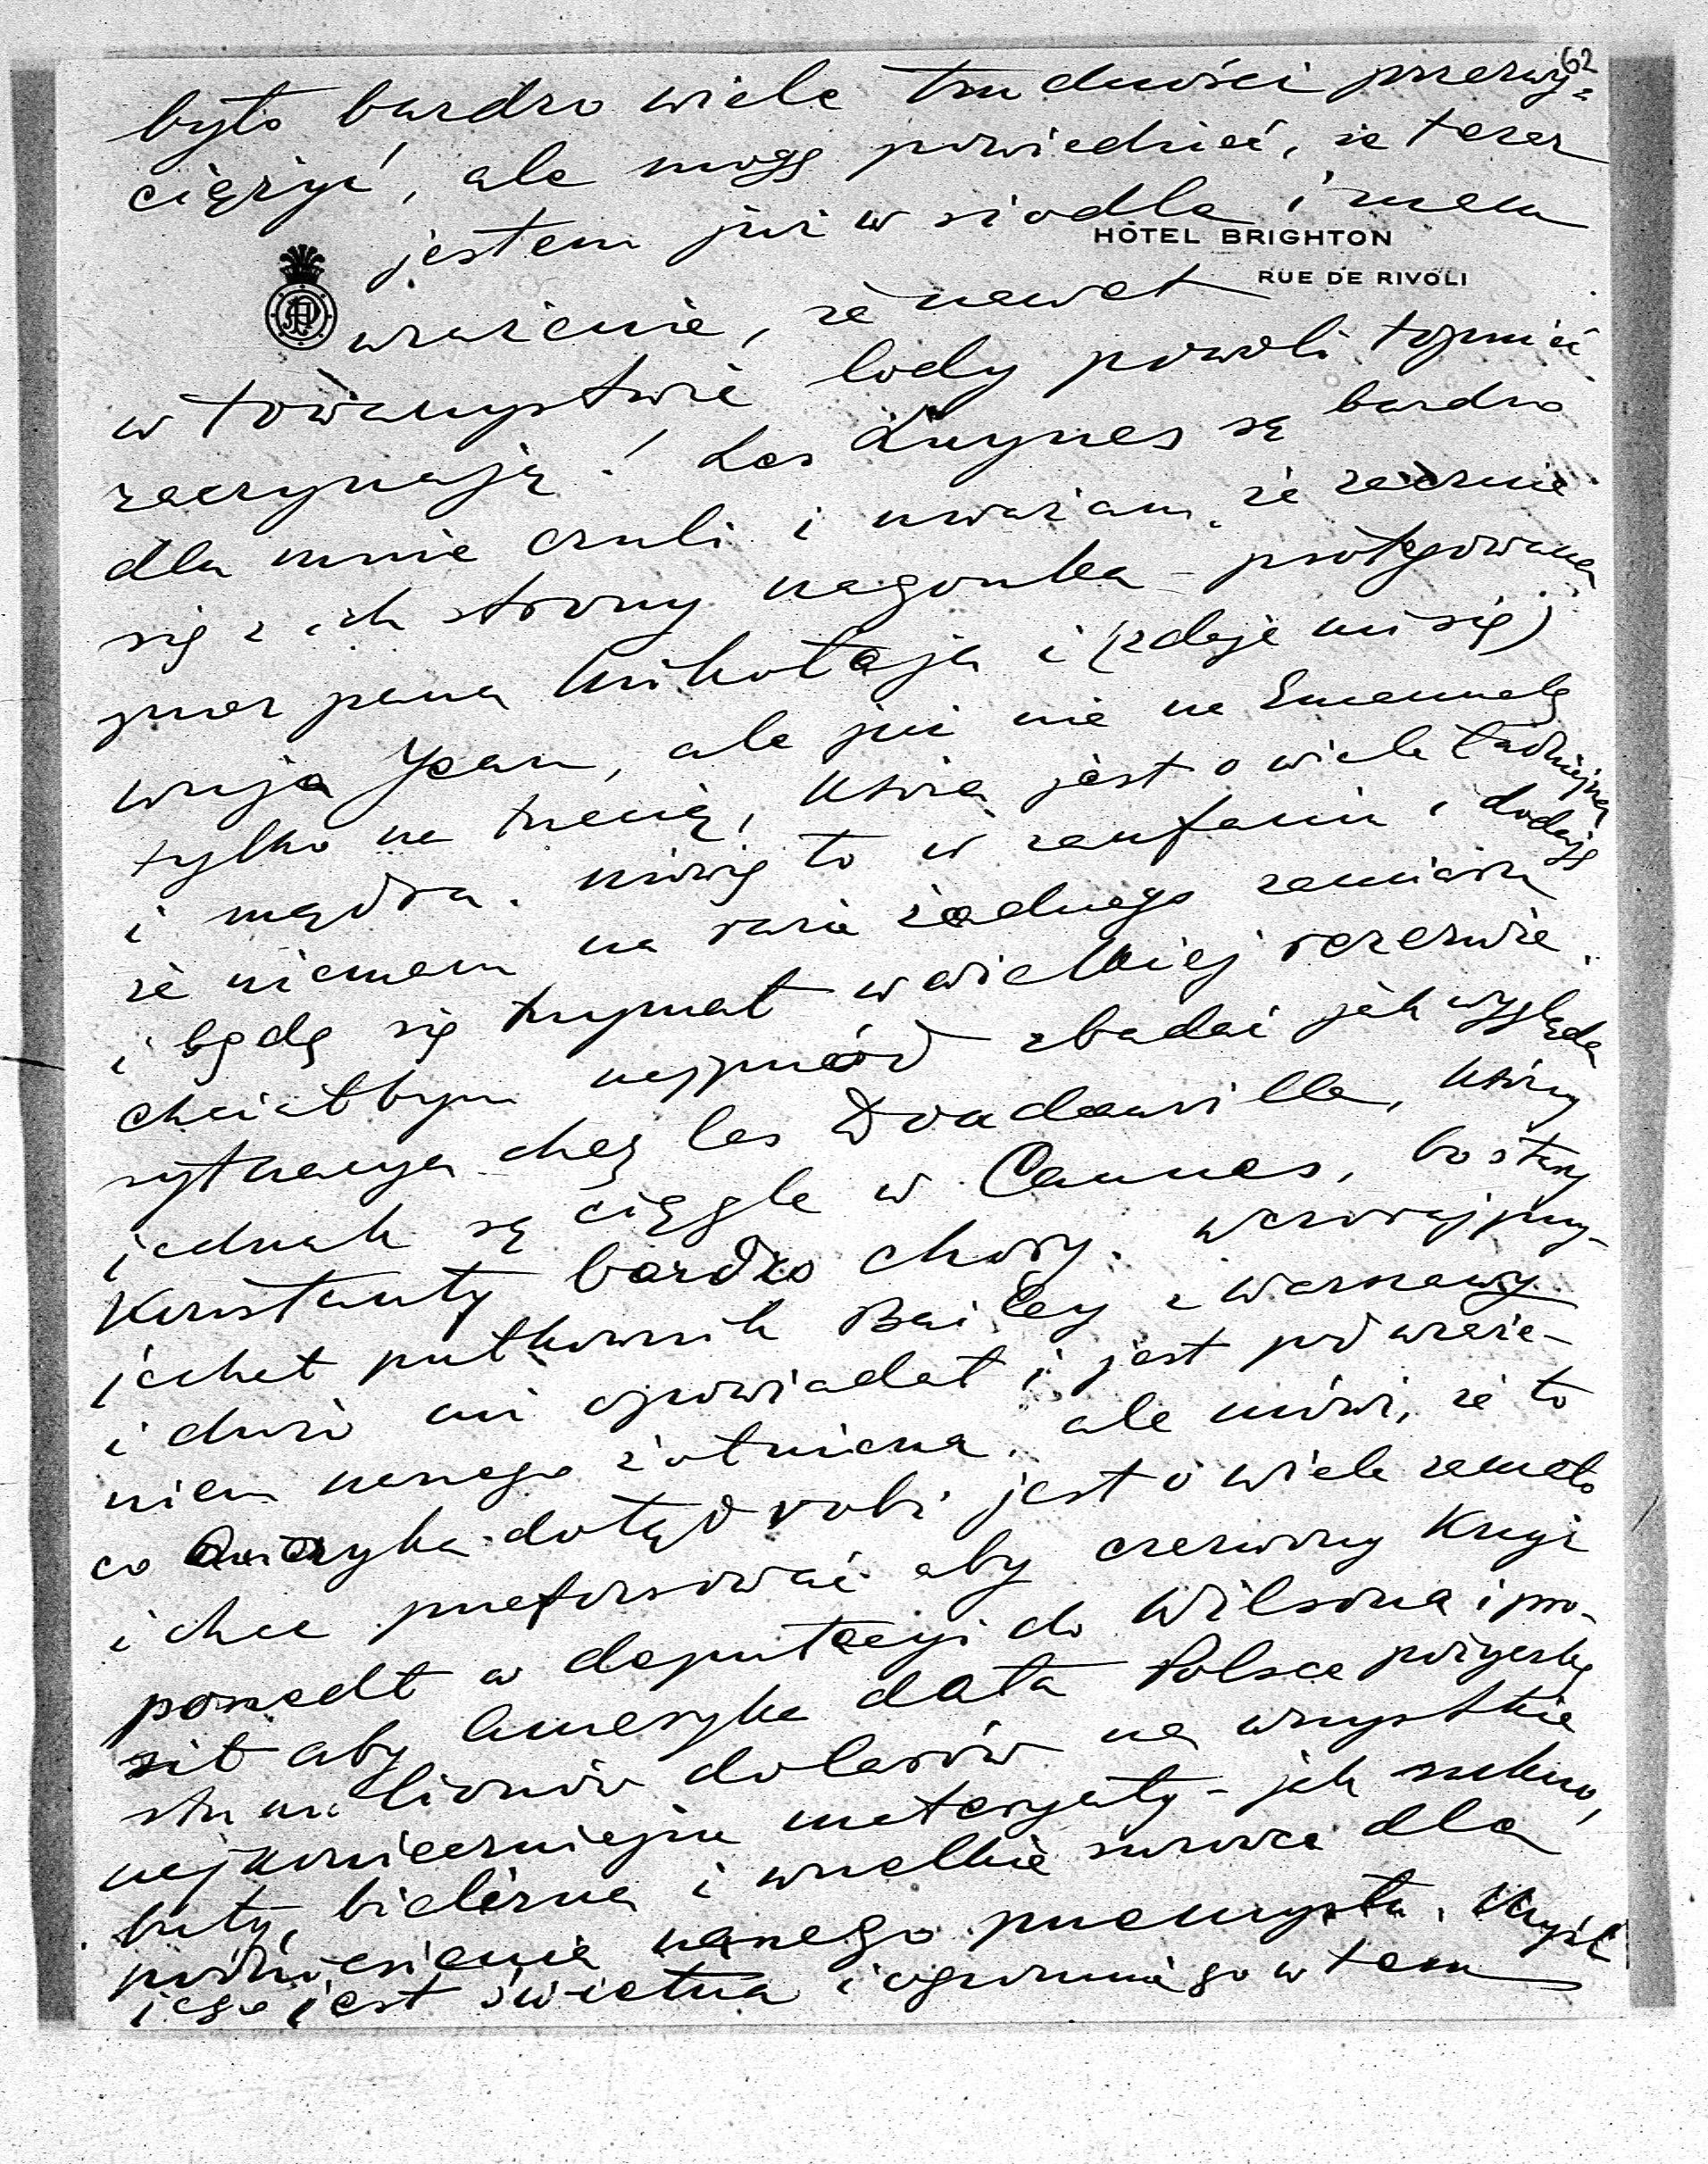 62
było bardzo wiele trudności przezwy=
ciężyć, ale mogę powiedzieć, że teraz
jestem już w siodle i mam
HÔTEL BRIGHTON
RUE DE RIVOLI
wrażenie, że nawet
w towarzystwie lody powoli topnieć
zaczynają! Les Luynes są bardzo
dla mnie czuli i uważam, że zacznie
się z ich strony nagonka – protegowana
przez pana Mikołaja i (zdaje mi się)
wuja Jean, ale już nie na Emanuelę
tylko na trzecią, która jest o wiele ładniejsza
i mądra. Mówię to w zaufaniu i dodaję
że niemam na razie żadnego zamiaru
i będę się trzymał w wielkiej rezerwie.
chciałbym najprzód zbadać jak wygląda
sytuacya chez les Doudeauville, którzy
jednak są ciągle w Cannes, bo stary
Konstanty bardzo chory. Wczoraj przy-
jechał pułkownik Bailey z Warszawy
i dużo mi opowiadał i jest pod wraże-
niem naszego żołnierza, ale mówi, że to
co Ameryka dotąd robi jest o wiele zamało
i chce przeforsować aby czerwony Krzyż
poszedł w deputacyi do Wilsona i pro-
sił aby Ameryka dała Polsce pożyczkę
stu milionów dolarów na wszystkie
najkonieczniejsze materyały – jak sukno,
buty, bielizna i wszelkie surowce dla
podniesienia naszego przemysłu. Myśl
jego jest świetna i ogromnie go w tem